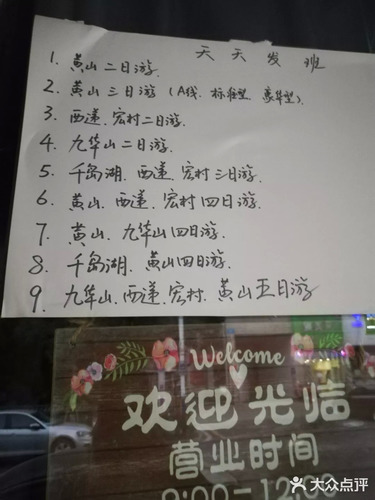 天天发班
1. 黄山二日游.
2. 黄山三日游(A线.标准型.豪华型).
3. 西递.宏村二日游.
4. 九华山二日游.
5. 千岛湖.西递.宏村三日游.
6. 黄山.西递.宏村四日游.
7. 黄山.九华山四日游.
8. 千岛湖.黄山四日游.
9. 九华山.西递.宏村.黄山五日游
Welcome
欢迎光临
营业时间
大众点评